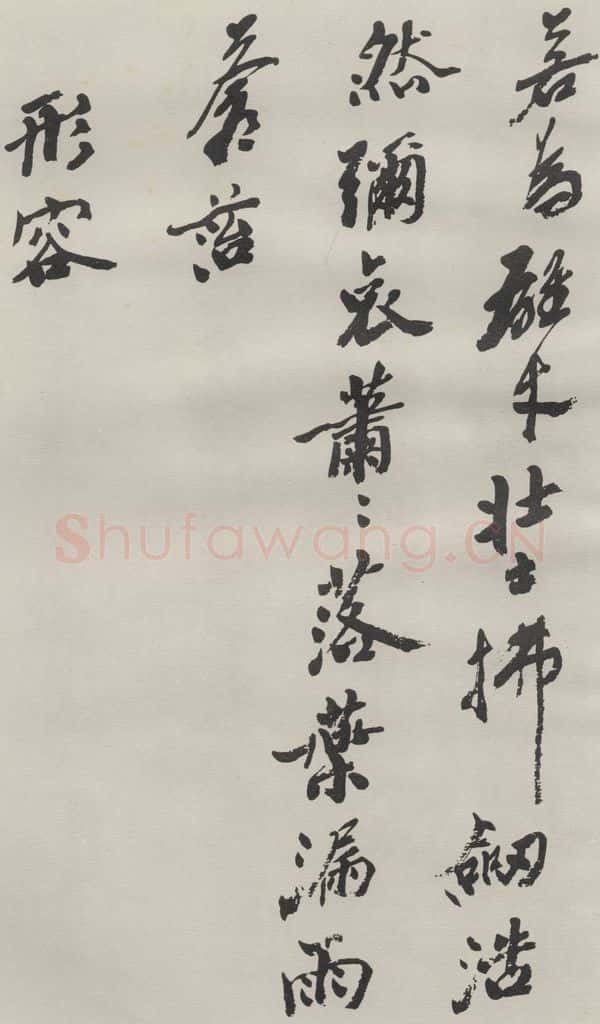 若為雄才壯士拂劒浩
然彌哀蕭〻落葉漏雨
蒼苔
形容
Shufawang.CN